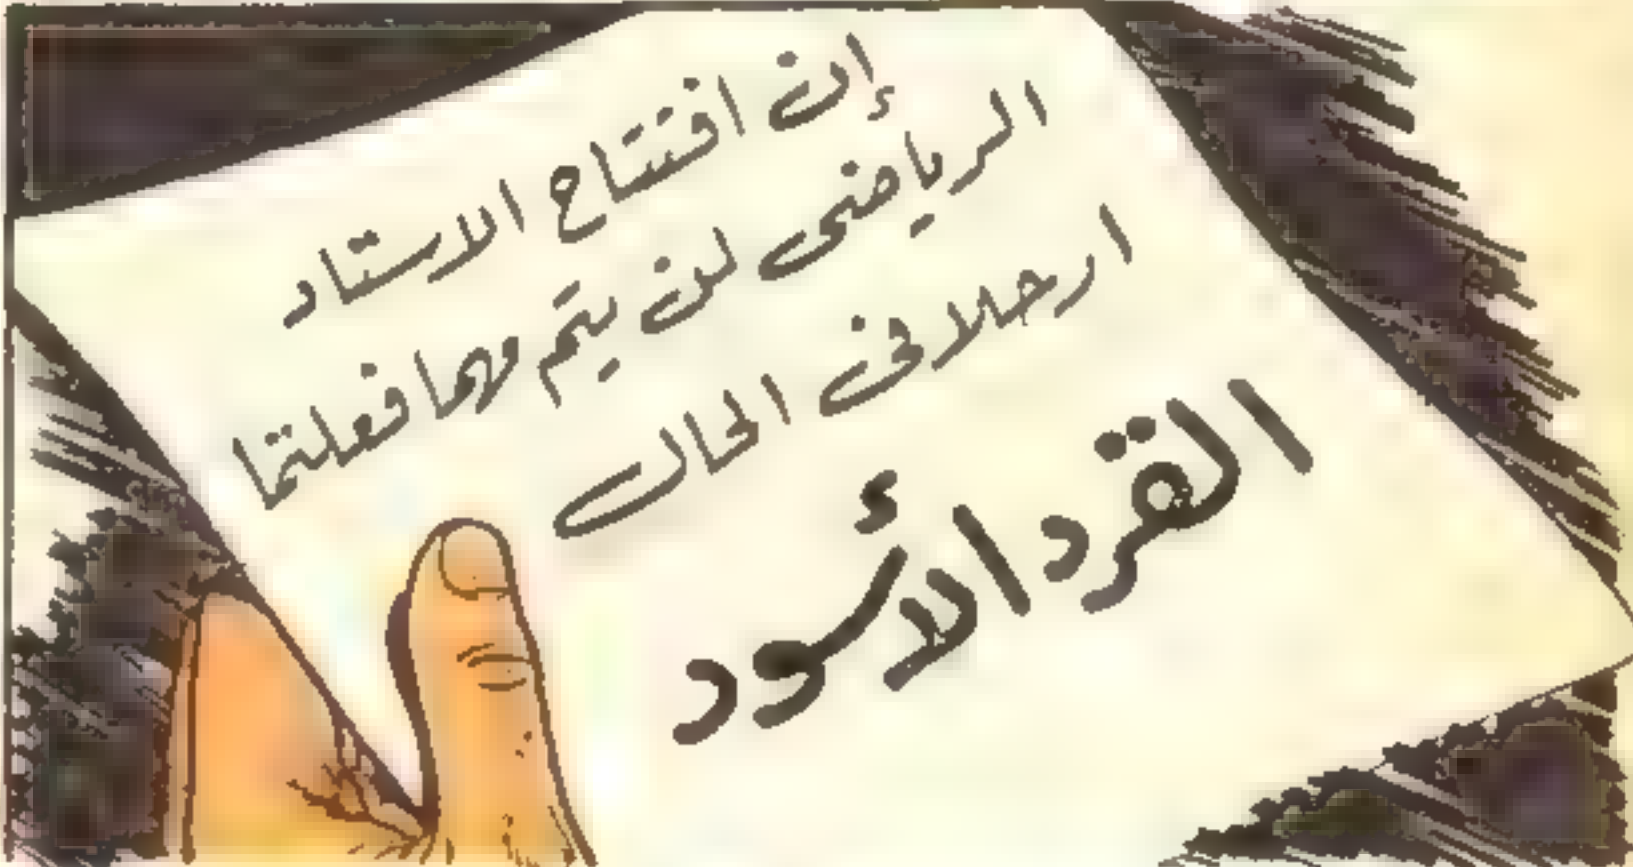 إن افتتاح الاستاد
الرياضى لن يتم مهما فعلتما
ارحلا فى الحال
القرد الأسود